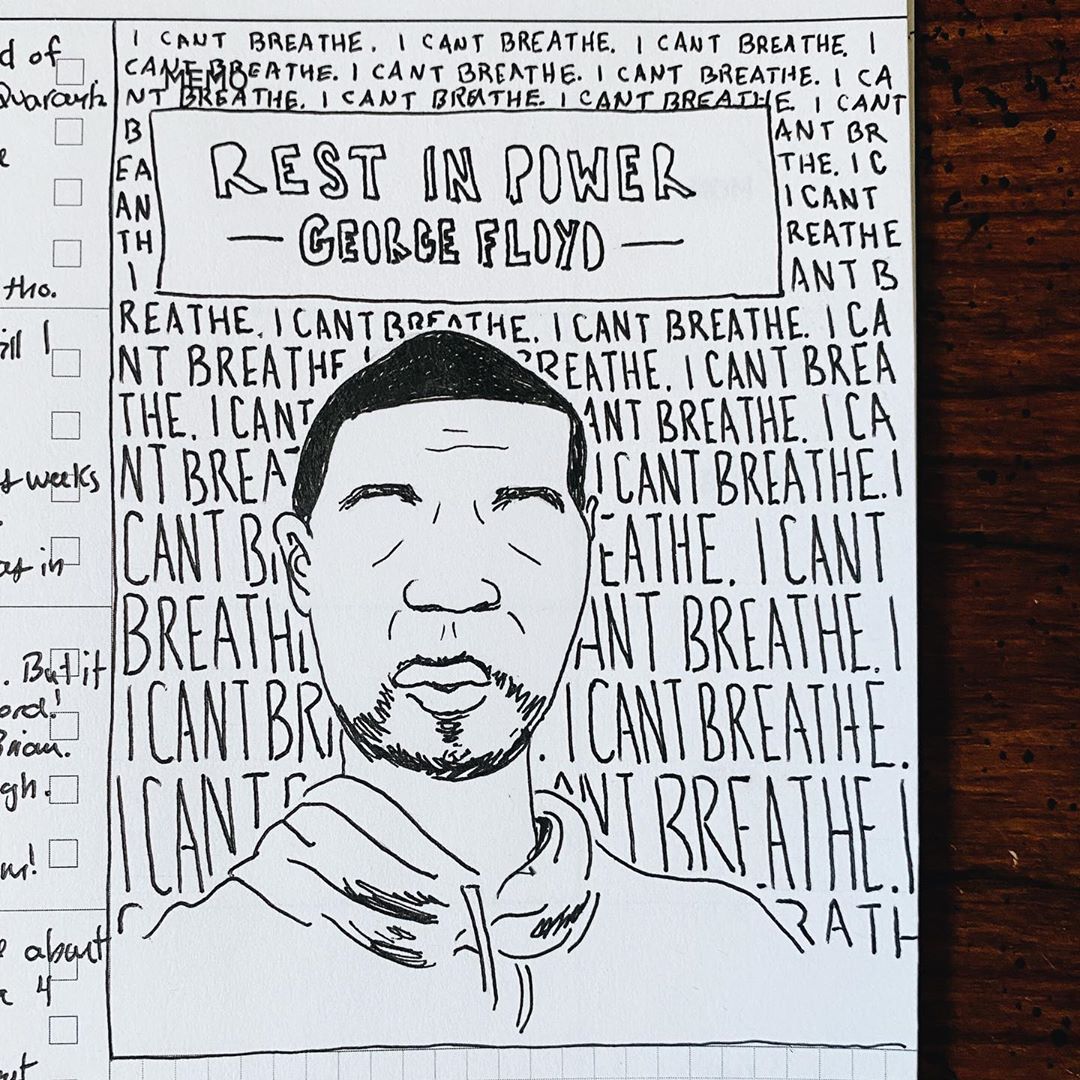 d of
tho.
ill I
weeks
in
. But it
ord!
Brian.
gh.
e about
4
I CANT BREATHE. I CANT BREATHE. I CANT BREATHE. I
CANT BREATHE. I CANT BREATHE. I CANT BREATHE. I CA
MEMO
NT BREATHE. I CANT BREATHE. I CANT BREATHE. I CANT
B ANT BR
EA THE. I C
AN I CANT
TH REATHE
I ANT B
REST IN POWER
— GEORGE FLOYD —
REATHE. I CANT BREATHE. I CANT BREATHE. I CA
NT BREATHE BREATHE. I CANT BREA
THE. I CANT ANT BREATHE. I CA
NT BREAT I CANT BREATHE. I
CANT B EATHE. I CANT
BREATH ANT BREATHE. I
I CANT BR . I CANT BREATHE.
I CANT ANT BREATHE. I
RATH